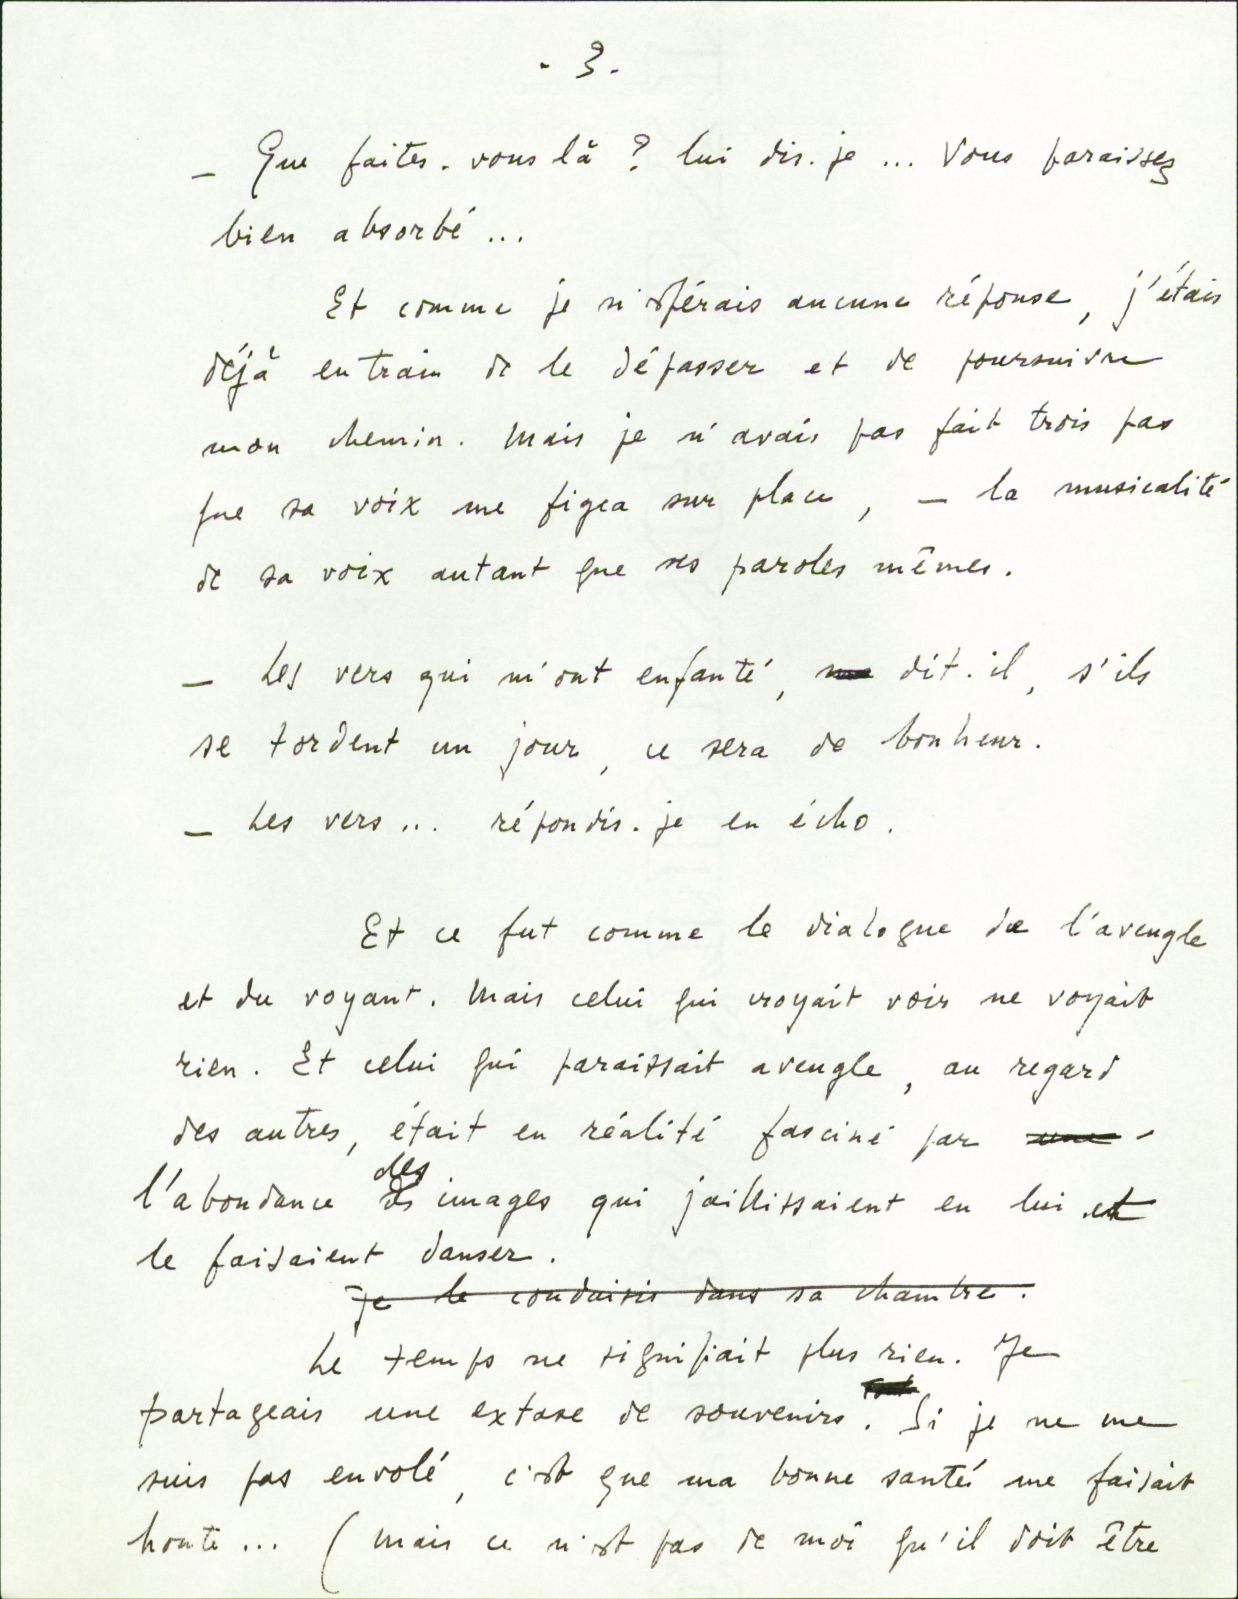 - 3 -
— Que faites-vous là ? lui dis-je ... Vous paraissez
bien absorbé ...
Et comme je n'espérais aucune réponse, j'étais
déjà en train de le dépasser et de poursuivre
mon chemin. Mais je n'avais pas fait trois pas
que sa voix me figea sur place, — la musicalité
de sa voix autant que ses paroles mêmes.
— Les vers qui m'ont enfanté, dit-il, s'ils
se tordent un jour, ce sera de bonheur.
— Les vers ... répondis-je en écho.
Et ce fut comme le dialogue de l'aveugle
et du voyant. Mais celui qui croyait voir ne voyait
rien. Et celui qui paraissait aveugle, au regard
des autres, était en réalité fasciné par une
l'abondance des images qui jaillissaient en lui et
le faisaient danser.
Je le conduisis dans sa chambre.
Le temps ne signifiait plus rien. Je
partageais une extase de souvenirs. Si je ne me
suis pas envolé, c'est que ma bonne santé me faisait
honte ... (mais ce n'est pas de moi qu'il doit être